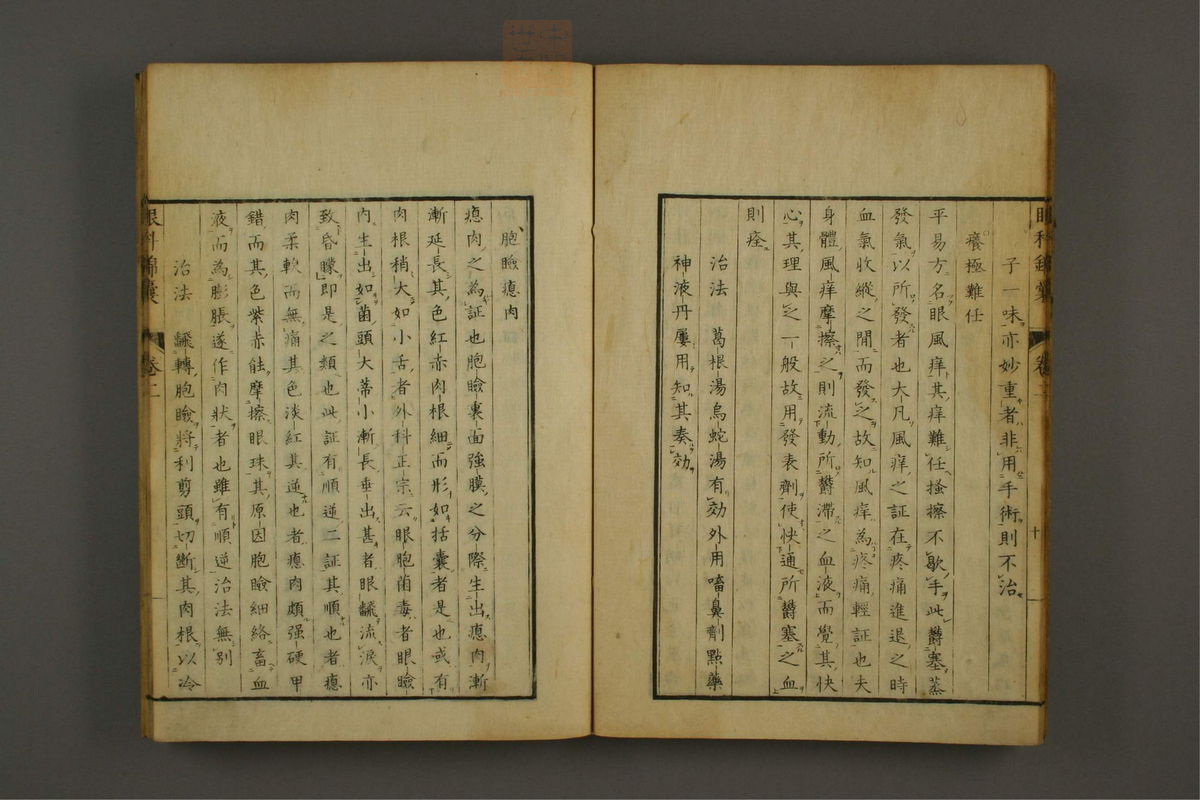 眼科錦囊 卷二 十
子一味亦妙重者非用手術則不治
癢極難任
平易方名眼風痒其痒難任搔擦不歇手此欝塞蒸
發氣以所發者也大凡風痒之証在疼痛進退之時
血氣收縱之間而發之故知風痒為疼痛輕証也夫
身體風痒摩擦之則流動所欝滯之血液而覺其快
心其理與之一般故用發表劑使快通所欝塞之血
則痊
治法 葛根湯烏蛇湯有効外用嗜鼻劑點藥
神液丹屢用知其奏効
胞瞼瘜肉
瘜肉之為証也胞瞼裏面強膜之分際生出瘜肉漸
漸延長其色紅赤肉根細而形如括囊者是也或有
肉根稍大如小舌者外科正宗云眼胞菌毒者眼瞼
內生出如菌頭大蒂小漸長垂出甚者眼飜流淚亦
致昏矇即是之類也此証有順逆二証其順也者瘜
肉柔軟而無痛其色淡紅其逆也者瘜肉頗强硬甲
錯而其色紫赤能摩擦眼珠其原因胞瞼細絡畜血
液而為膨脹遂作肉狀者也雖有順逆治法無別
治法 飜轉胞瞼將利剪頭切斷其肉根以冷
眼科錦囊 卷二